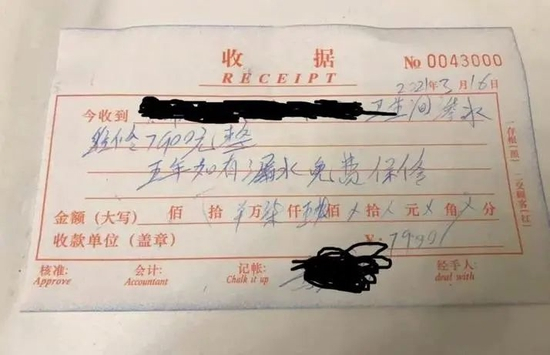 收据
RECEIPT
No 0043000
2021年3月16日
今收到 卫生间渗水
维修7900元整
五年如有漏水免费保修
一存根(黑) 二交顾客(红)
金额（大写） 佰 拾 万柒仟 佰 拾 元 角 分
收款单位（盖章） ¥:7900
核准: 会计: 记帐: 经手人:
Approve Accountant Chalk it up deal with